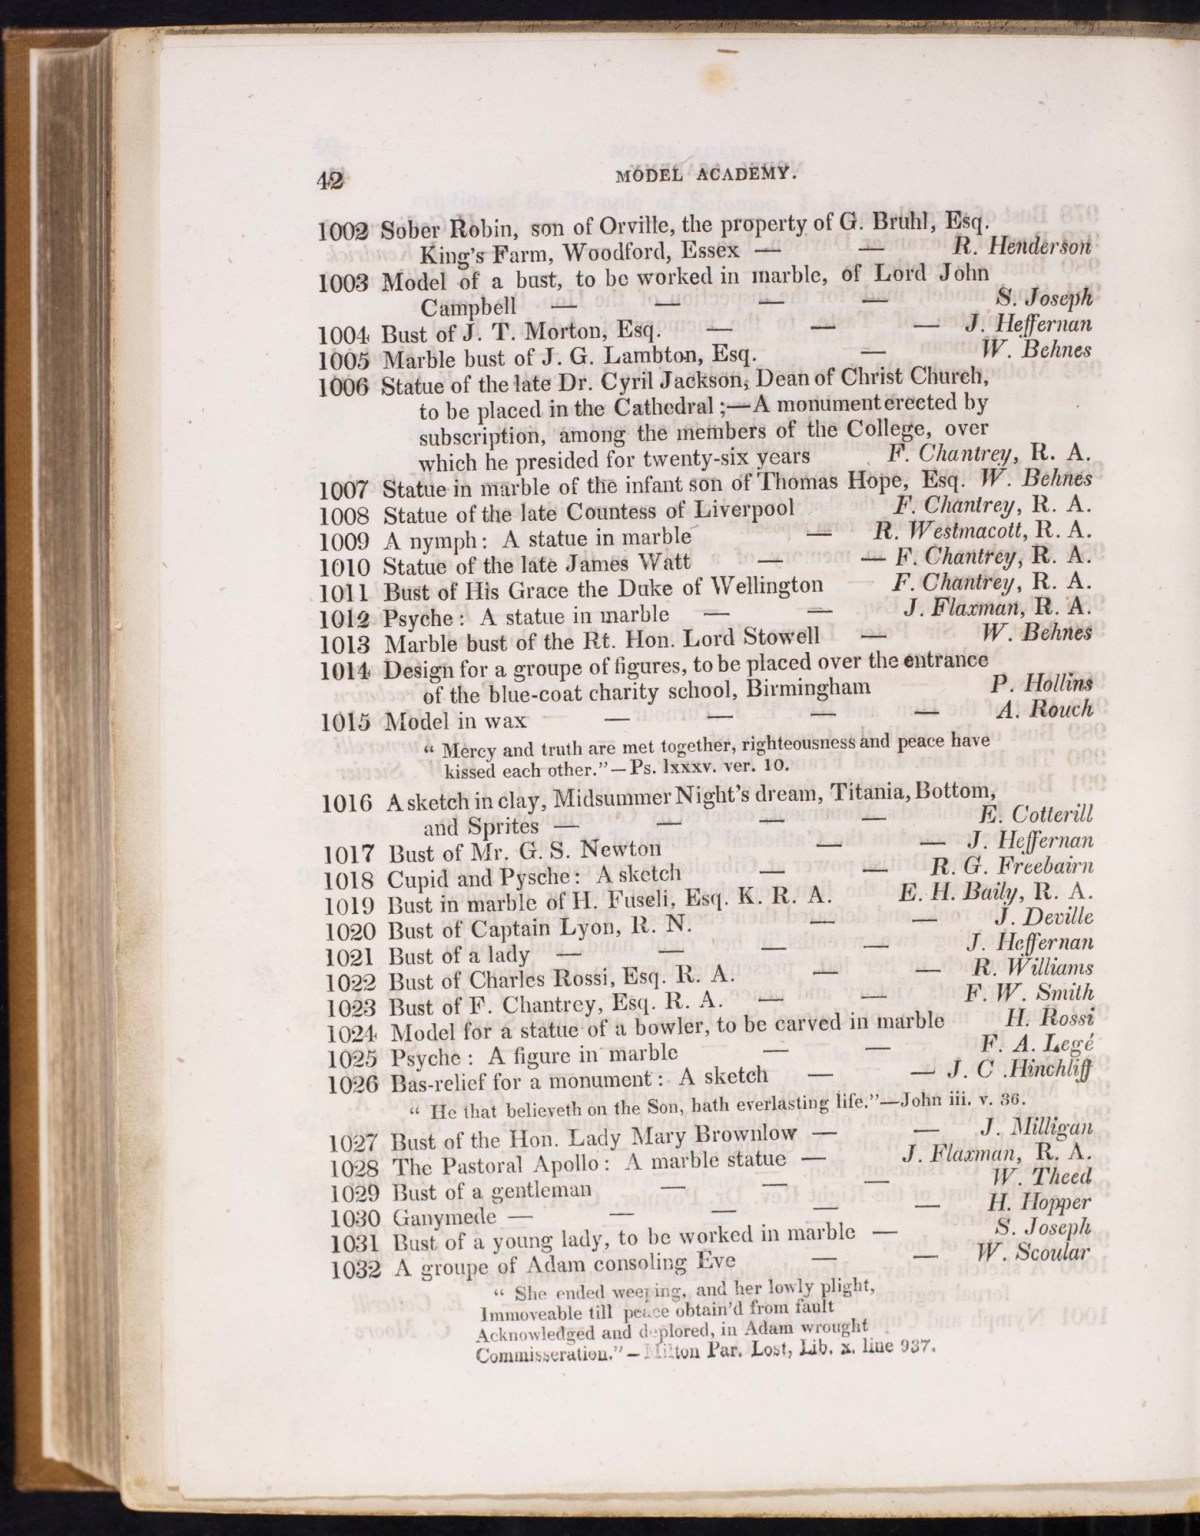 42 MODEL ACADEMY.
1002 Sober Robin, son of Orville, the property of G. Bruhl, Esq.
King's Farm, Woodford, Essex — — R. Henderson
1003 Model of a bust, to be worked in marble, of Lord John
Campbell — — — — S. Joseph
1004 Bust of J. T. Morton, Esq. — — — J. Heffernan
1005 Marble bust of J. G. Lambton, Esq. — W. Behnes
1006 Statue of the late Dr. Cyril Jackson, Dean of Christ Church,
to be placed in the Cathedral ;—A monument erected by
subscription, among the members of the College, over
which he presided for twenty-six years F. Chantrey, R. A.
1007 Statue in marble of the infant son of Thomas Hope, Esq. W. Behnes
1008 Statue of the late Countess of Liverpool F. Chantrey, R. A.
1009 A nymph: A statue in marble — R. Westmacott, R. A.
1010 Statue of the late James Watt — — F. Chantrey, R. A.
1011 Bust of His Grace the Duke of Wellington F. Chantrey, R. A.
1012 Psyche: A statue in marble — — J. Flaxman, R. A.
1013 Marble bust of the Rt. Hon. Lord Stowell — W. Behnes
1014 Design for a groupe of figures, to be placed over the entrance
of the blue-coat charity school, Birmingham P. Hollins
1015 Model in wax — — — — A. Rouch
“ Mercy and truth are met together, righteousness and peace have
kissed each other.”—Ps. lxxxv. ver. 10.
1016 A sketch in clay, Midsummer Night's dream, Titania, Bottom,
and Sprites — — — — E. Cotterill
1017 Bust of Mr. G. S. Newton — — J. Heffernan
1018 Cupid and Pysche: A sketch — — R. G. Freebairn
1019 Bust in marble of H. Fuseli, Esq. K. R. A. E. H. Baily, R. A.
1020 Bust of Captain Lyon, R. N. — — J. Deville
1021 Bust of a lady — — — — J. Heffernan
1022 Bust of Charles Rossi, Esq. R. A. — — R. Williams
1023 Bust of F. Chantrey, Esq. R. A. — — F. W. Smith
1024 Model for a statue of a bowler, to be carved in marble H. Rossi
1025 Psyche : A figure in marble — — F. A. Legé
1026 Bas-relief for a monument: A sketch — — J. C .Hinchliff
“ He that believeth on the Son, hath everlasting life.”—John iii. v. 36.
1027 Bust of the Hon. Lady Mary Brownlow — — J. Milligan
1028 The Pastoral Apollo: A marble statue — J. Flaxman, R. A.
1029 Bust of a gentleman — — — W. Theed
1030 Ganymede — — — — — H. Hopper
1031 Bust of a young lady, to be worked in marble — S. Joseph
1032 A groupe of Adam consoling Eve — — W. Scoular
“ She ended weeping, and her lowly plight,
Immoveable till peace obtain'd from fault
Acknowledged and deplored, in Adam wrought
Commisseration.”—Milton Par. Lost, Lib. x. line 937.